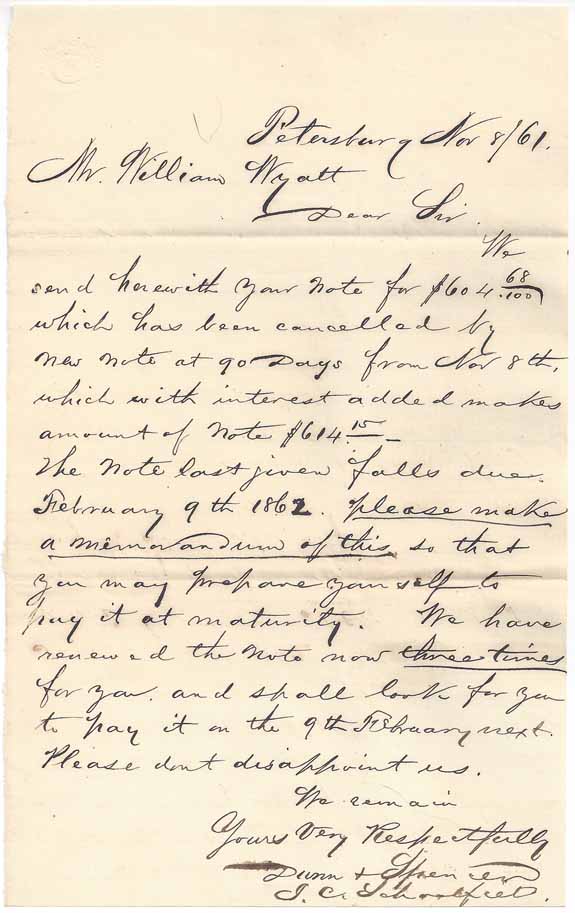 Petersburg Nov 8/61.
Mr. William Wyatt
Dear Sir.
We
send herewith your Note for $604 68/100
which has been cancelled by
new note at 90 Days from Nov 8th,
which with interest added makes
amount of Note $614 15/–
The Note last given falls due
February 9th 1862. please make
a memorandum of this, so that
you may prepare yourself to
pay it at maturity. We have
renewed the Note now three times
for you. and shall look for you
to pay it on the 9th February next.
Please dont disappoint us.
We remain
Yours Very Respectfully
Dunn & Spencer
J. C. Schoolfield.